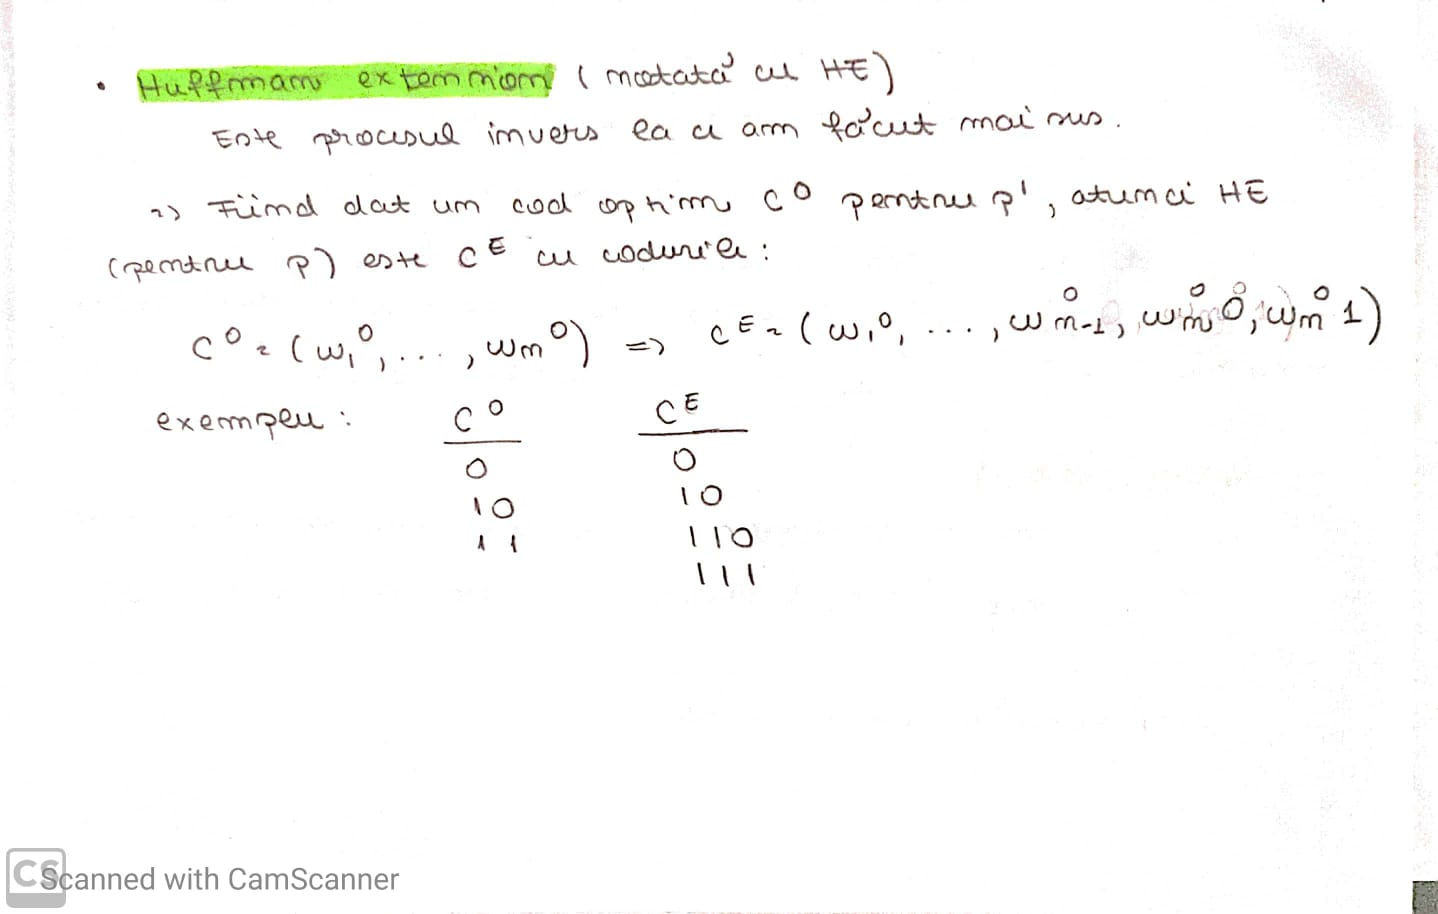 • Huffman extension (notată cu HE)
Este procesul invers la ce am făcut mai sus.
=> Fiind dat un cod optim C⁰ pentru p', atunci HE
(pentru p) este Cᴱ cu codurile:
C⁰ = (w₁⁰, ..., wₘ⁰) => Cᴱ = (w₁⁰, ..., w⁰ₘ₋₁, wₘ⁰0, wₘ⁰1)
exemplu: C⁰ Cᴱ
0 0
10 10
11 110
111
CS Scanned with CamScanner